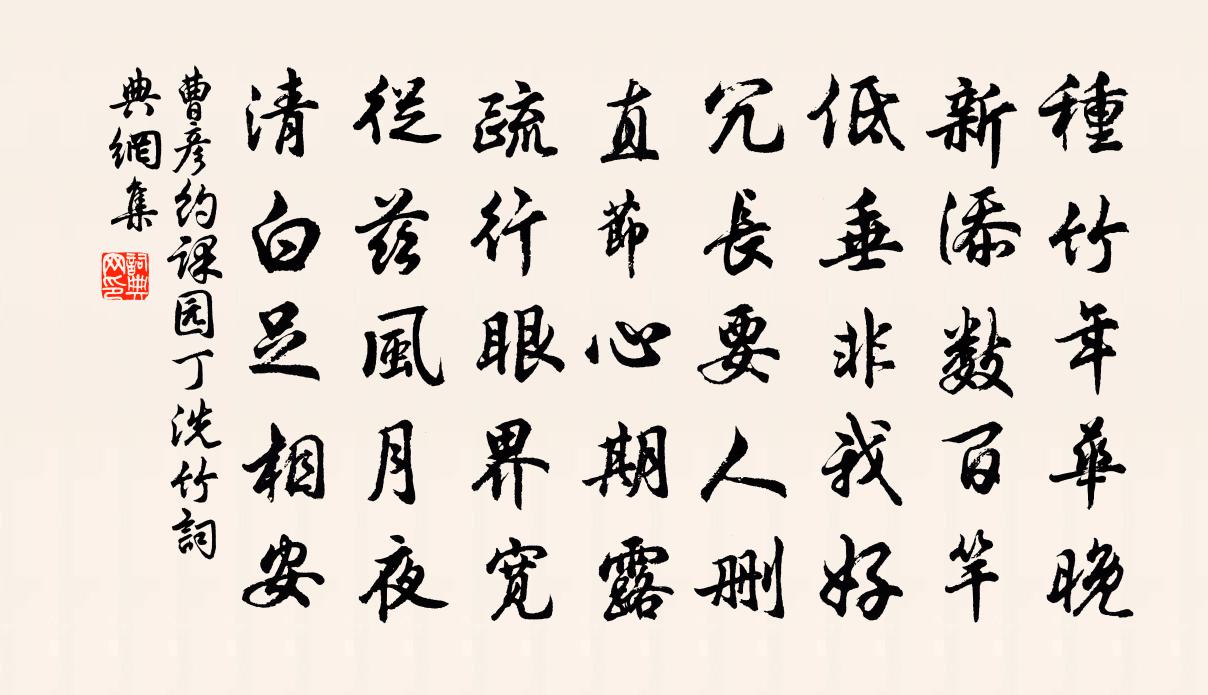 種竹年華晚
新添數百竿
低垂非我好
冗長要人删
直節心期露
疏行眼界寬
從茲風月夜
清白足相安
曹彥約課园丁洗竹詞
典網集
詞典
网印